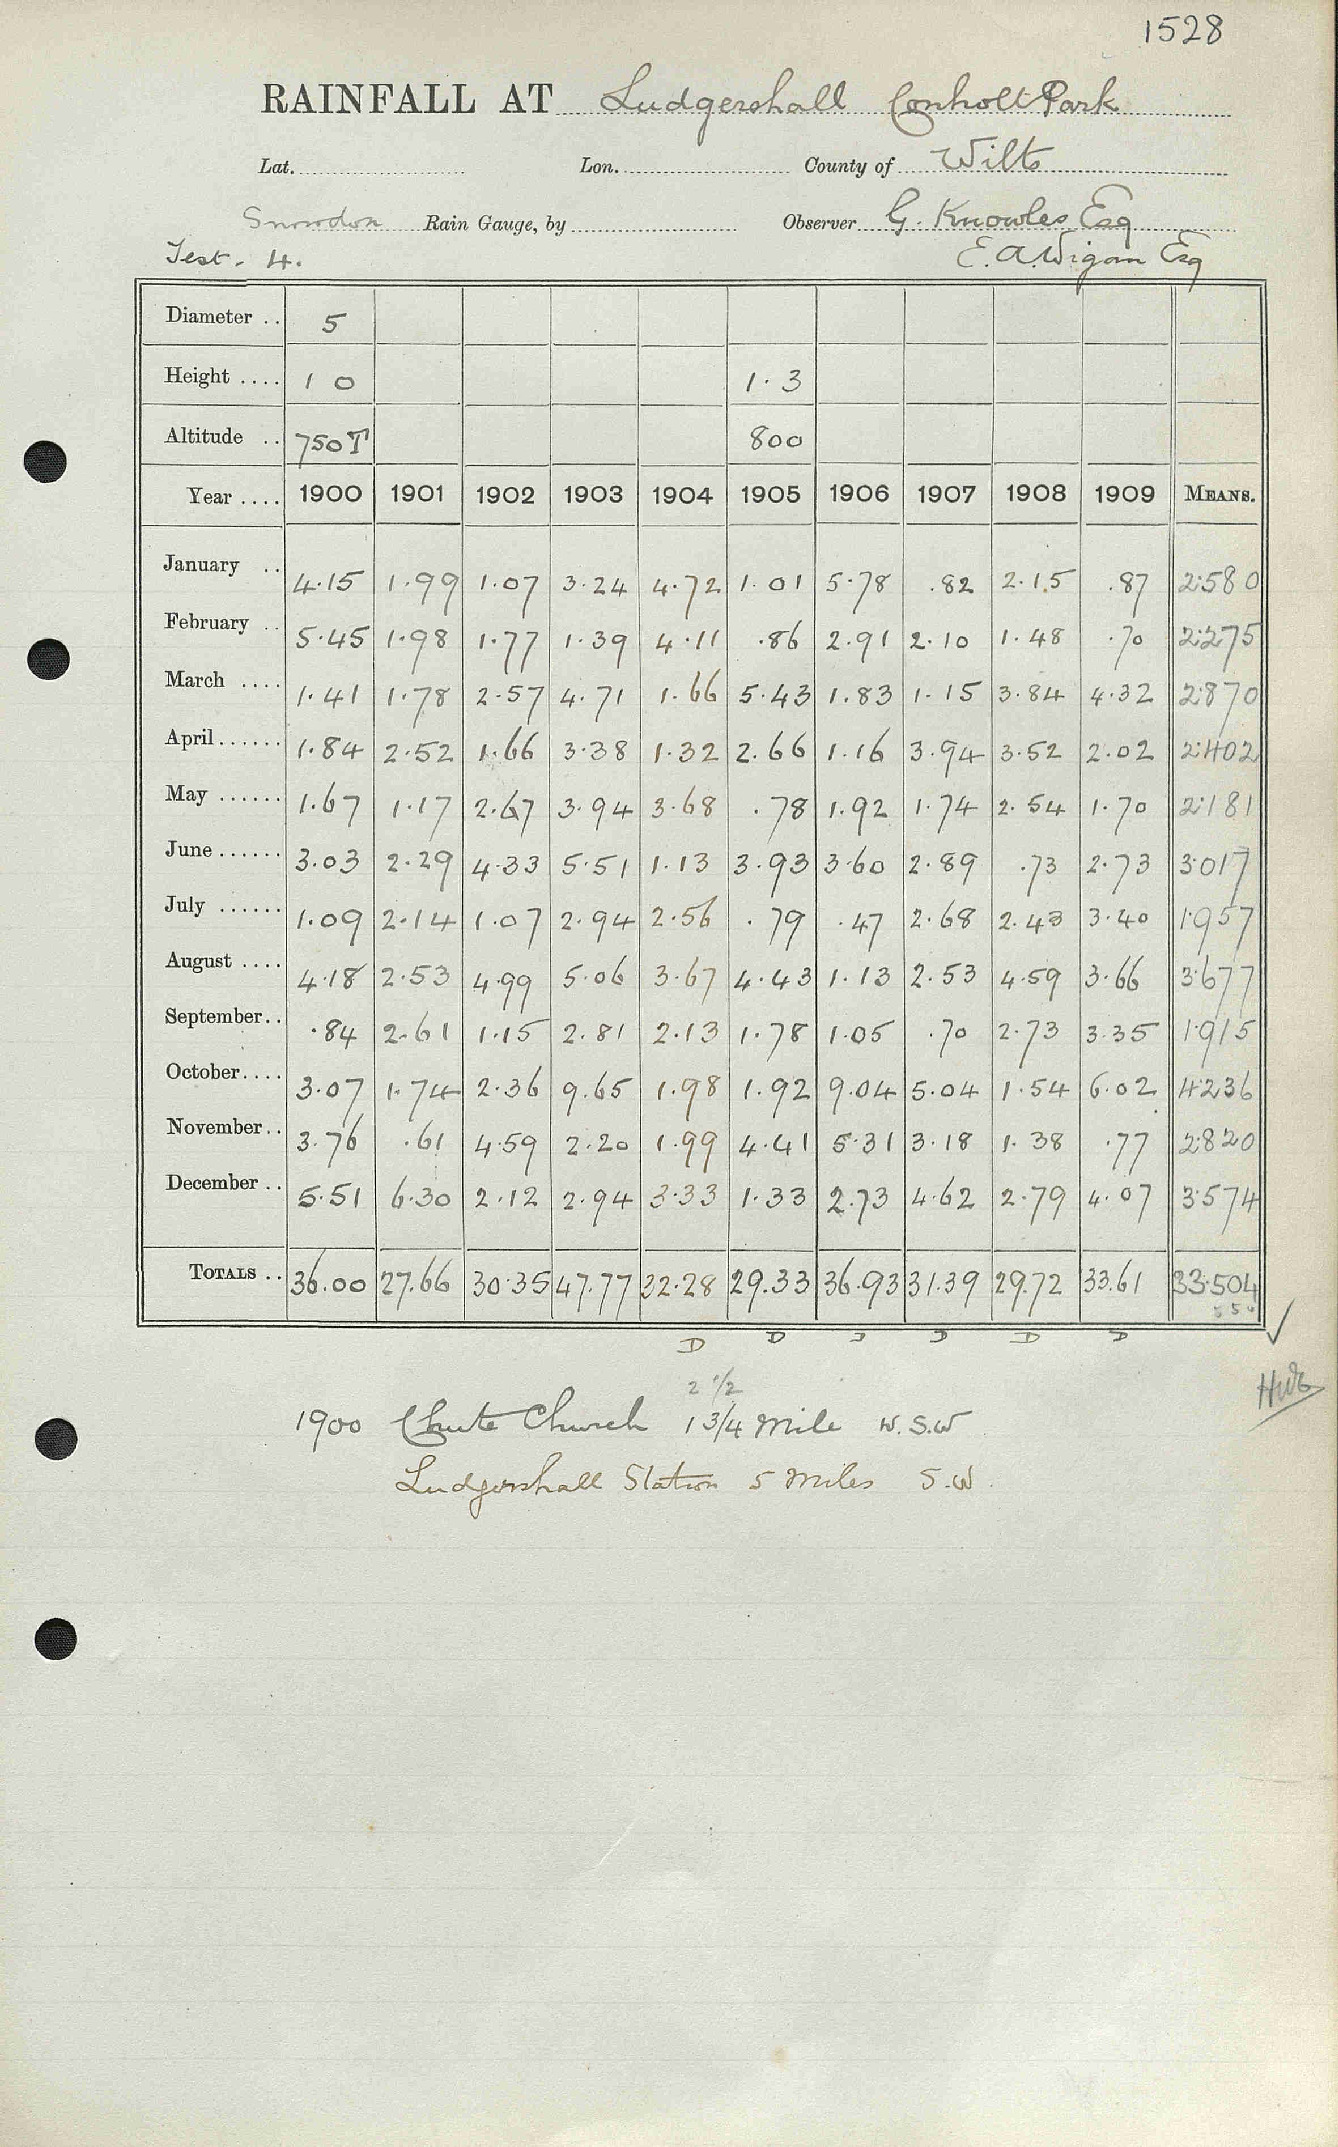 1528
RAINFALL AT Ludgershall Conholt Park
Lat. Lon. County of Wilts
Snowdon Rain Gauge, by Observer G. Knowles Esq
Test. 4. E. A. Wigan Esq
Diameter .. 5
Height .... 1 0 1.3
Altitude .. 750T 800
Year .... 1900 1901 1902 1903 1904 1905 1906 1907 1908 1909 MEANS.
January .. 4.15 1.99 1.07 3.24 4.72 1.01 5.78 .82 2.15 .87 2.580
February .. 5.45 1.98 1.77 1.39 4.11 .86 2.91 2.10 1.48 .70 2.275
March .... 1.41 1.78 2.57 4.71 1.66 5.43 1.83 1.15 3.84 4.32 2.870
April...... 1.84 2.52 1.66 3.38 1.32 2.66 1.16 3.94 3.52 2.02 2.402
May ...... 1.67 1.17 2.67 3.94 3.68 .78 1.92 1.74 2.54 1.70 2.181
June ...... 3.03 2.29 4.33 5.51 1.13 3.93 3.60 2.89 .73 2.73 3.017
July ...... 1.09 2.14 1.07 2.94 2.56 .79 .47 2.68 2.43 3.40 1.957
August .... 4.18 2.53 4.99 5.06 3.67 4.43 1.13 2.53 4.59 3.66 3.677
September.. .84 2.61 1.15 2.81 2.13 1.78 1.05 .70 2.73 3.35 1.915
October.... 3.07 1.74 2.36 9.65 1.98 1.92 9.04 5.04 1.54 6.02 4.236
November.. 3.76 .61 4.59 2.20 1.99 4.41 5.31 3.18 1.38 .77 2.820
December .. 5.51 6.30 2.12 2.94 3.33 1.33 2.73 4.62 2.79 4.07 3.574
TOTALS .. 36.00 27.66 30.35 47.77 32.28 29.33 36.93 31.39 29.72 33.61 33.504
D D D D D D
2 1/2
1900 Chute Church 1 3/4 Mile W.S.W
Ludgershall Station 5 Miles S.W